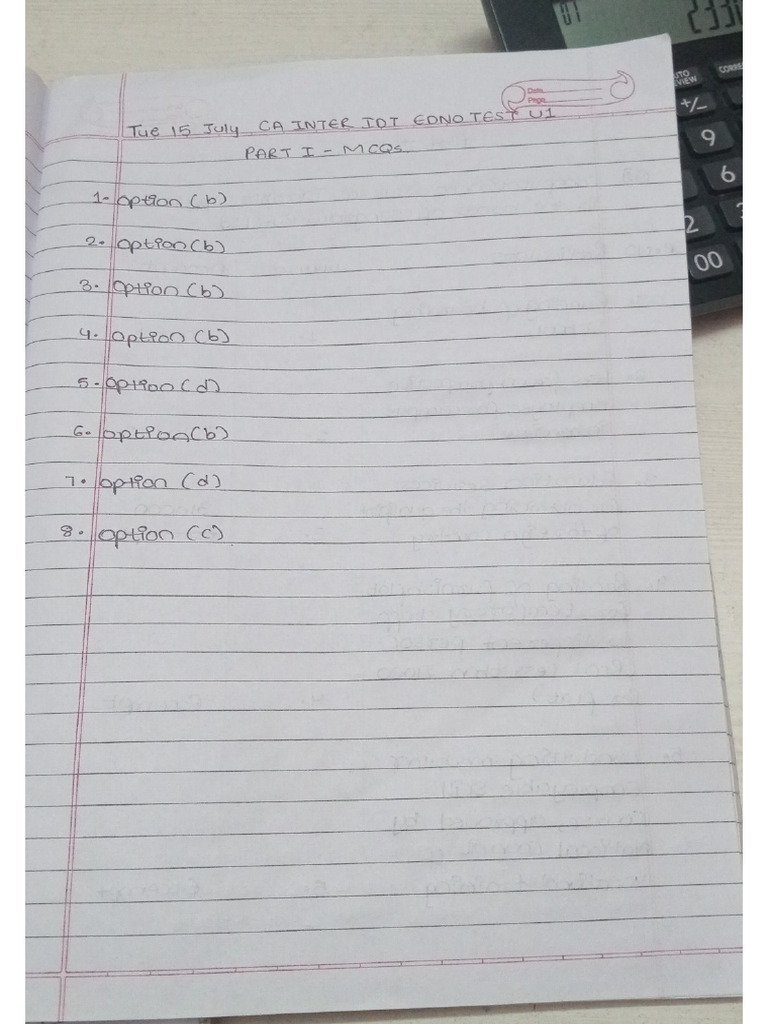 Date
Page
Tue 15 July CA INTER IDT EDNO TEST U1
PART I - MCQs
1. option (b)
2. option (b)
3. option (b)
4. option (b)
5. option (d)
6. option (b)
7. option (d)
8. option (c)
01
+/-
9
6
2
00